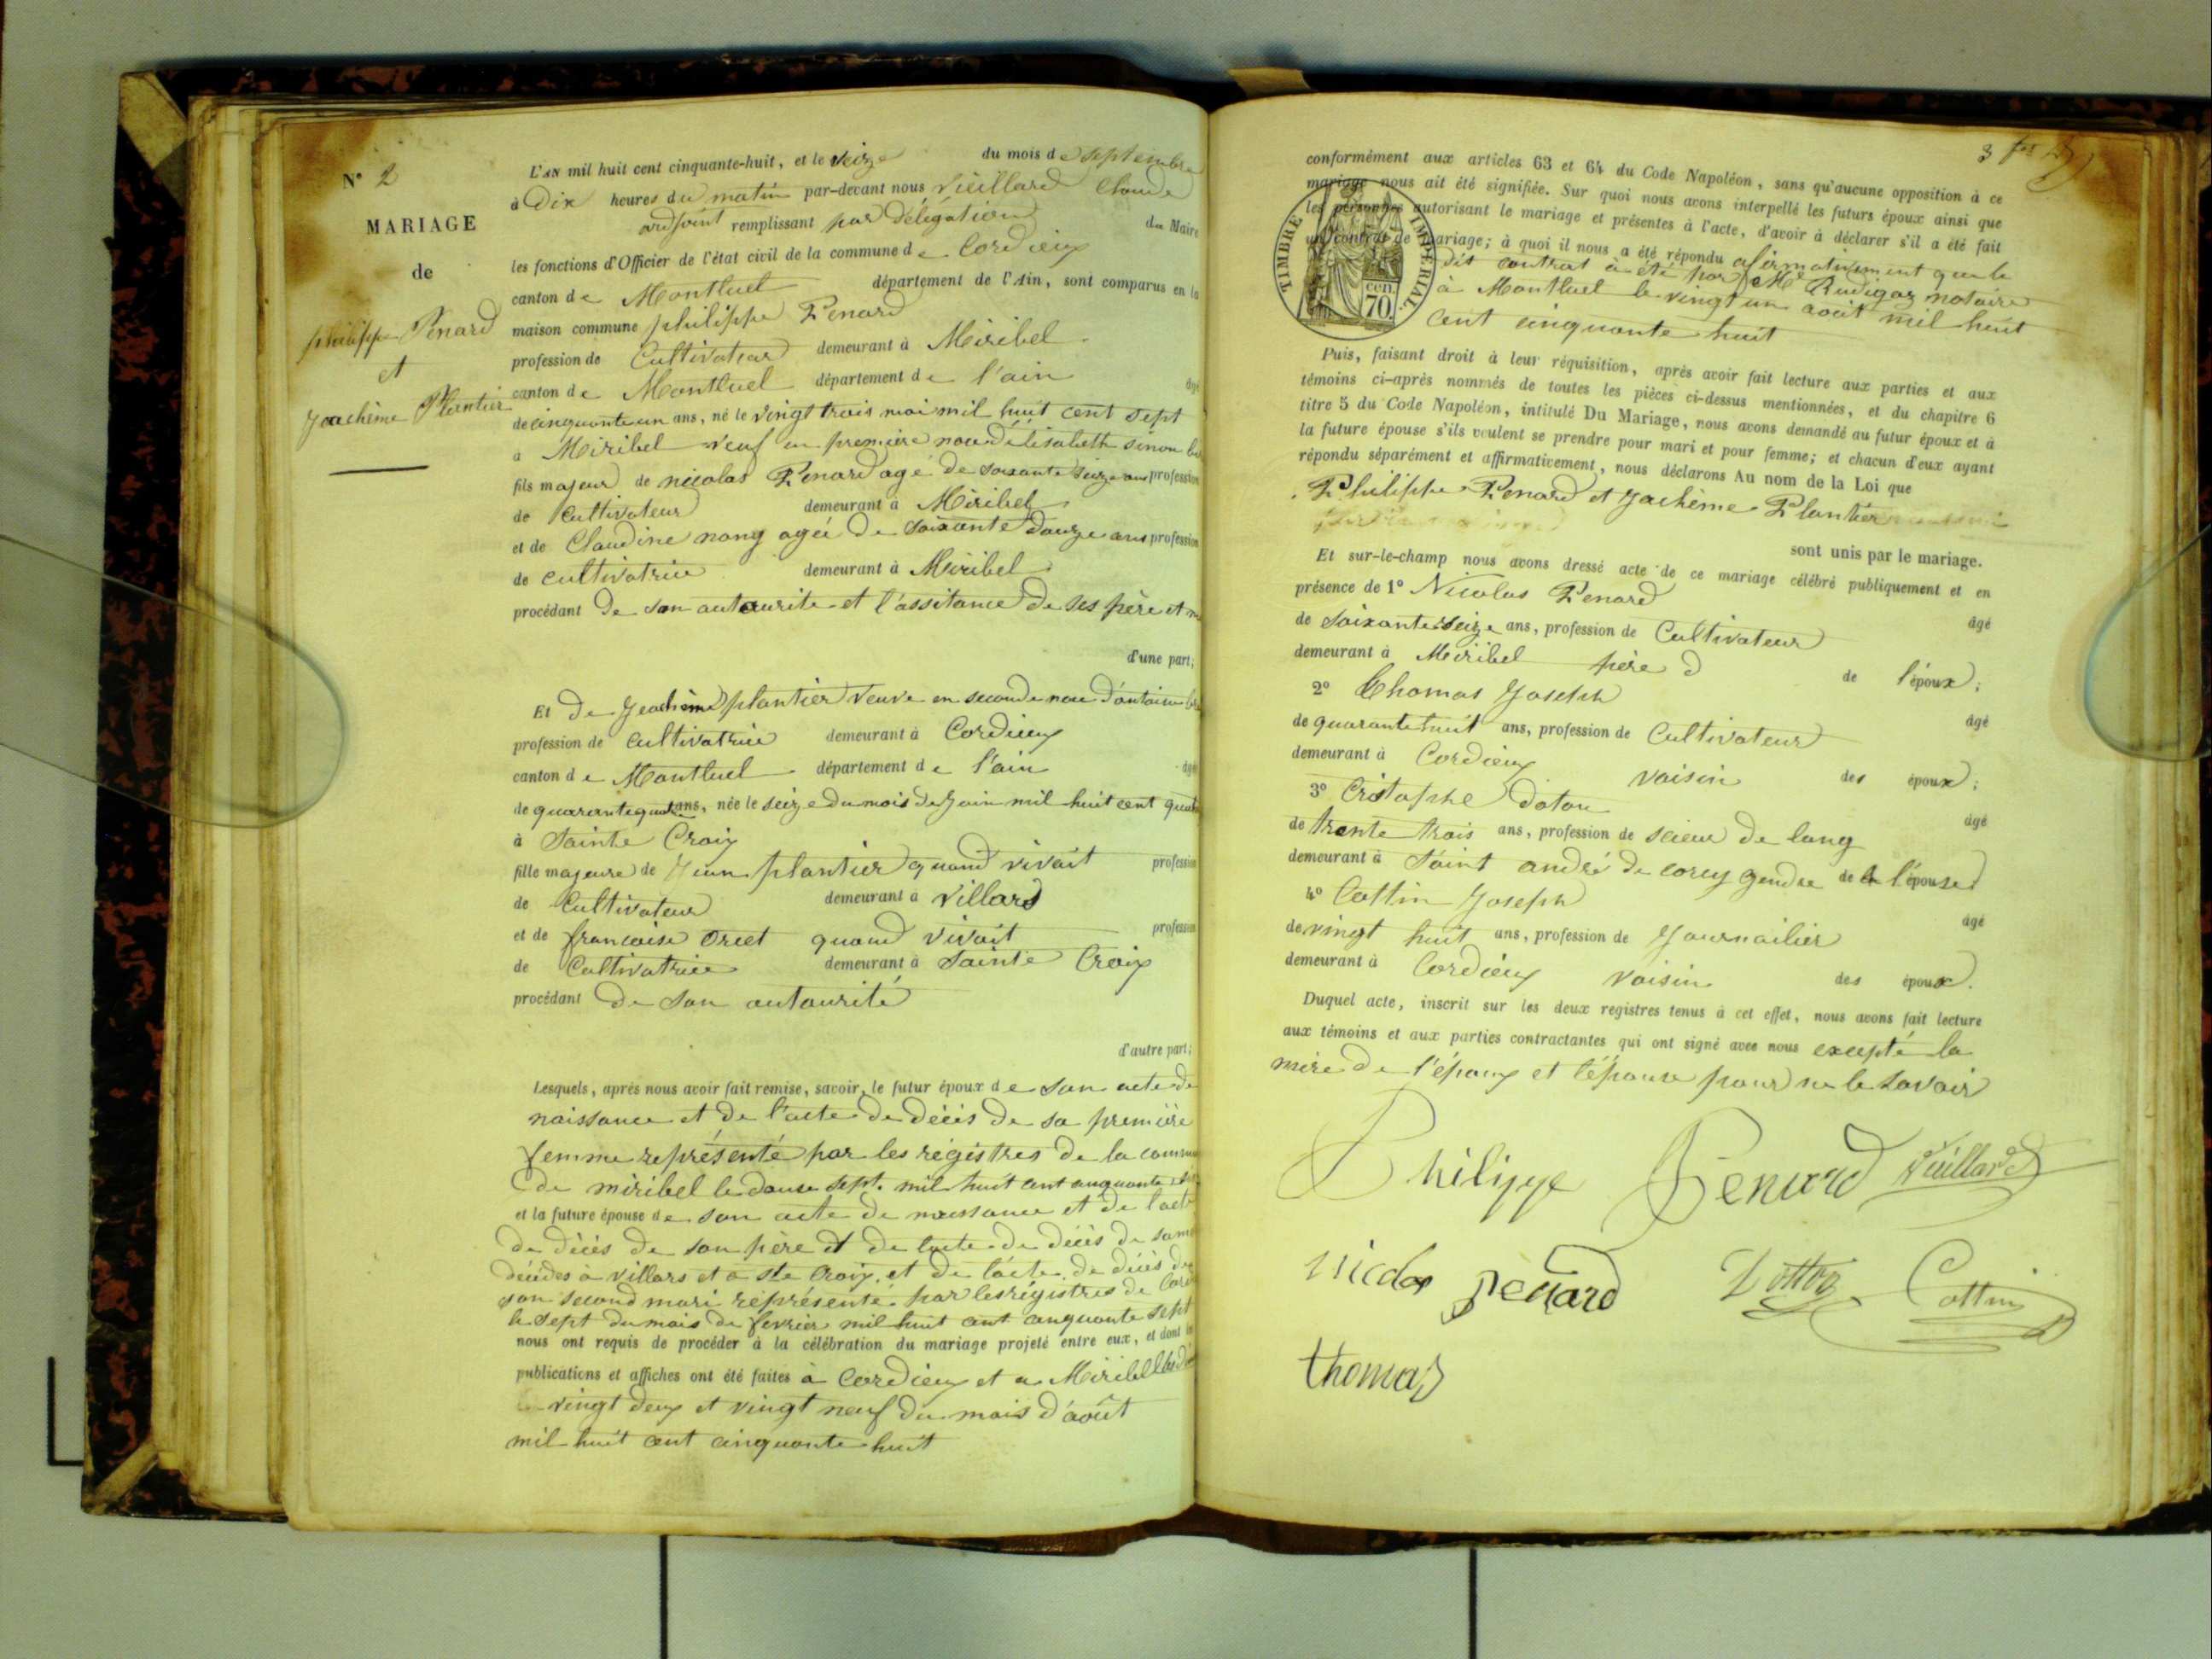 N° 2
MARIAGE
de
philippe Penard
et
Joachème Plantier
L'AN mil huit cent cinquante-huit, et le seize du mois de septembre
à Dix heures du matin par-devant nous Vieillard Claude
adjoint remplissant par Délégation du Maire
les fonctions d'Officier de l'état civil de la commune de Cordieux
canton de Montluel département de l'Ain, sont comparus en la
maison commune philippe Penard
profession de Cultivateur demeurant à Miribel
canton de Montluel département de l'ain âgé
de cinquante un ans, né le vingt trois mai mil huit cent sept
à Miribel veuf en première
fils majeur de nicolas Penard agé de soixante seize ans profession
de Cultivateur demeurant à Miribel
et de Claudine nong agée De soixante Douze ans profession
de cultivatrice demeurant à Miribel
procédant De son autaurite et l'assitance De ses père et
d'une part;
Et De Joachème plantier Veuve en seconde noce D'antoine
profession de Cultivatrice demeurant à Cordieux
canton de Montluel département de l'ain âgé
de quarante quatre ans, née le seize du mois De Juin mil huit cent
à Sainte Croix
fille majeure de Jean plantier quand vivait profession
de Cultivateur demeurant à Villard
et de francoise Orcet quand vivait profession
de Cultivatrice demeurant à Sainte Croix
procédant De son autaurité
d'autre part;
Lesquels, après nous avoir fait remise, savoir, le futur époux de son acte de
naissance et De l'acte De Décès De sa première
femme représenté par les régistres De la
De miribel le douse sept. mil huit cent cinquante
et la future épouse de son acte De naissance et De l'acte
De Décès De son père et De l'acte De Décès De
Décédés à Villars et a Ste Croix, et De l'acte De Décès De
son second mari représenté par les régistres De
le sept du mois De fevrier mil huit cent cinquante sept
nous ont requis de procéder à la célébration du mariage projeté entre eux, et dont les
publications et affiches ont été faites à Cordieux et a Miribel
vingt deux et vingt neuf Du mois D'août
mil huit cent cinquante huit
conformément aux articles 63 et 64 du Code Napoléon, sans qu'aucune opposition à ce
mariage nous ait été signifiée. Sur quoi nous avons interpellé les futurs époux ainsi que
les personnes autorisant le mariage et présentes à l'acte, d'avoir à déclarer s'il a été fait
un contrat de mariage; à quoi il nous a été répondu afirmativement que le
Dit contrat à été par Me Rudigoz notaire
à Montluel le vingt un août mil huit
Cent cinquante huit
TIMBRE IMPÉRIAL
70 cen.
Puis, faisant droit à leur réquisition, après avoir fait lecture aux parties et aux
témoins ci-après nommés de toutes les pièces ci-dessus mentionnées, et du chapitre 6
titre 5 du Code Napoléon, intitulé Du Mariage, nous avons demandé au futur époux et à
la future épouse s'ils veulent se prendre pour mari et pour femme; et chacun d'eux ayant
répondu séparément et affirmativement, nous déclarons Au nom de la Loi que
Philippe Penard et Joachème Plantier
sont unis par le mariage.
Et sur-le-champ nous avons dressé acte de ce mariage célébré publiquement et en
présence de 1° Nicolas Penard âgé
de soixante seize ans, profession de Cultivateur
demeurant à Miribel père de l'époux;
2° Thomas Joseph âgé
de quarante huit ans, profession de Cultivateur
demeurant à Cordieux voisin des époux;
3° Cristophe Doton âgé
de trente trois ans, profession de scieur De long
demeurant à Saint andré De corcy gendre de l'épouse
4° Cottin Joseph âgé
de vingt huit ans, profession de Journailier
demeurant à Cordieux voisin des époux.
Duquel acte, inscrit sur les deux registres tenus à cet effet, nous avons fait lecture
aux témoins et aux parties contractantes qui ont signé avec nous excepté la
mère De l'époux et l'épouse pour ne le savoir
Philippe Penard Vieillard
nicolas penard Dotton Cottin
thomas